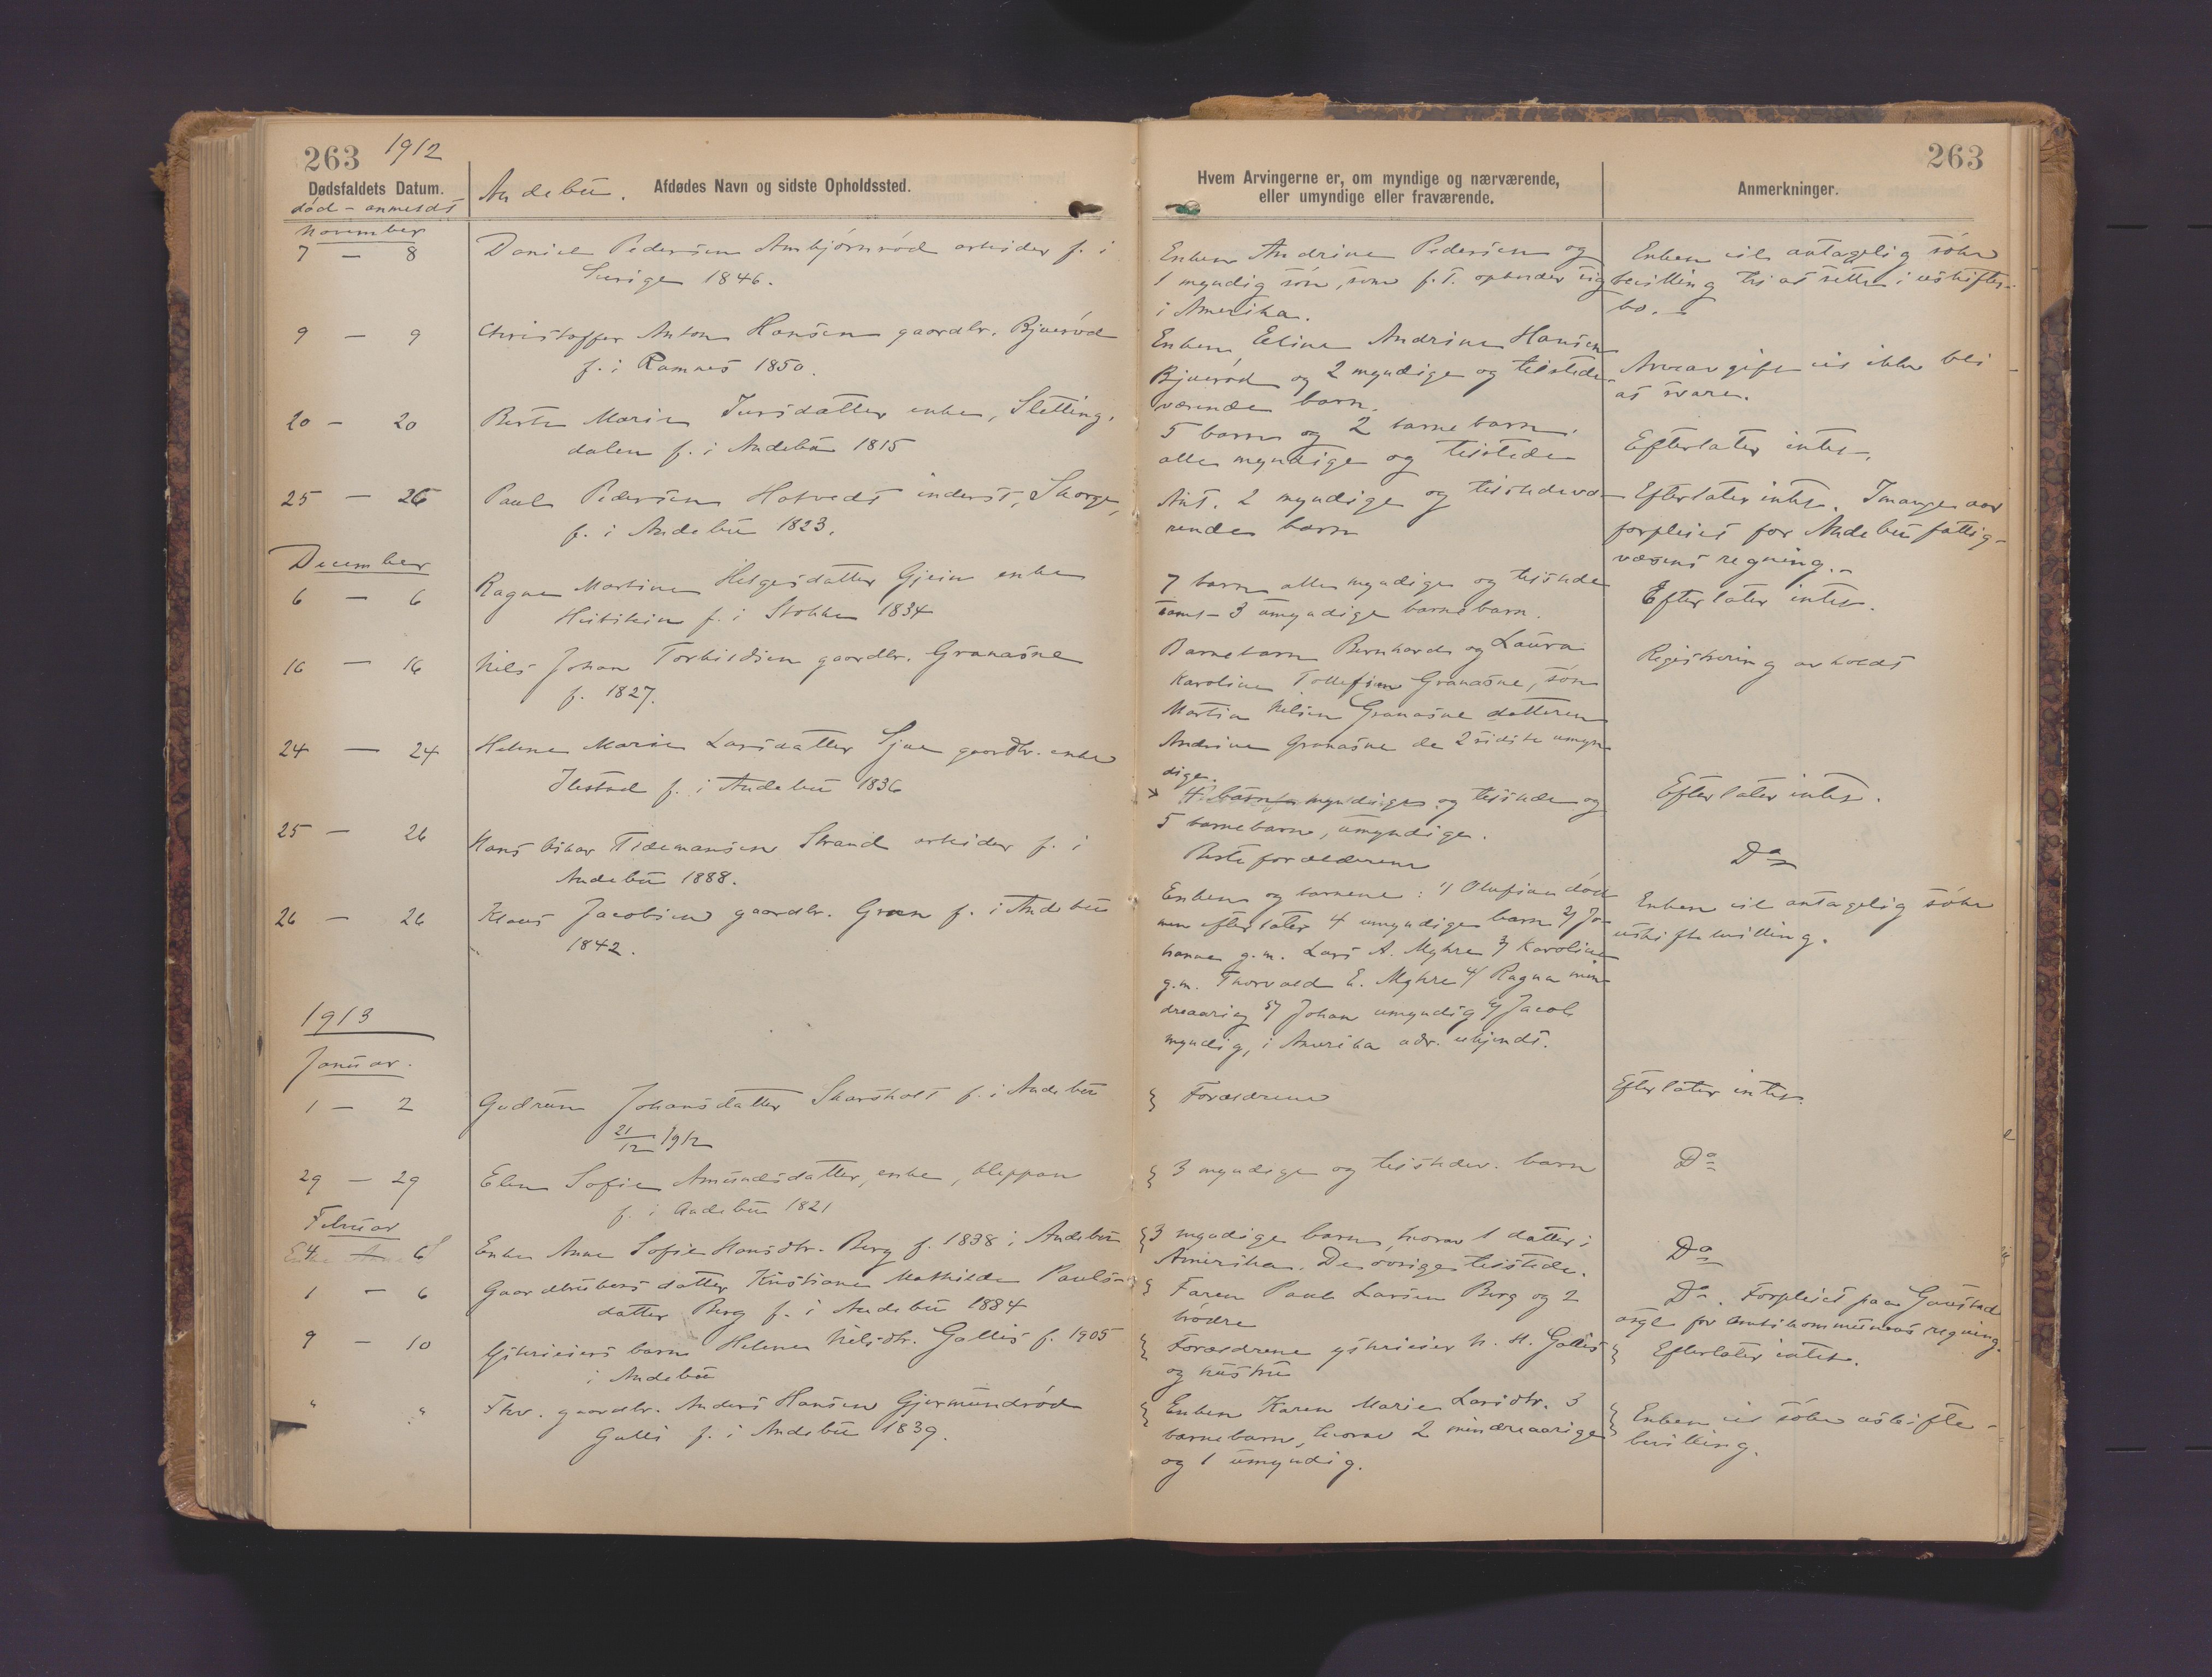 263 1912
263
Dødsfaldets Datum.
død - anmeldt
Andebu. Afdødes Navn og sidste Opholdssted.
Hvem Arvingerne er, om myndige og nærværende,
eller umyndige eller fraværende.
Anmerkninger.
November
7 — 8
Daniel Pedersen Ambjørnrød arbeider f. i
Sverige 1846.
Enken Andrine Pedersen og
1 myndig søn, som f.t. opholder sig
i Amerika.
Enken vil antagelig søke
bevilling til at sitte i uskiftet
bo.
9 — 9
Christoffer Anton Hansen gaardbr. Bjuerød
f. i Ramnes 1850.
Enken Eline Andrine Hansen
Bjuerød og 2 myndige og tilstede
værende barn.
Arveavgift vil ikke bli
at svare.
20 — 20
Berte Marie Iversdatter enke, Sletting.
dalen f. i Andebu 1815
5 barn og 2 barnebarn.
alle myndige og tilstede
Efterlater intet.
25 — 26
Paul Pedersen Hotvedt inderst, Skorge,
f. i Andebu 1823.
Ant. 2 myndige og tilstedevæ-
rende barn
Efterlater intet. I mange aar
forpleiet for Andebu fattig-
væsens regning.
December
6 — 6
Ragne Martine Helgesdatter Gjein enke
f. i Stokke 1834
7 barn alle myndige og tilstede
samt 3 umyndige barnebarn.
Efterlater intet.
16 — 16
Nils Johan Torkildsen gaardbr. Granaasne
f. 1827.
Barnebarn Bernhard og Laura
Karoline Tollefsen Granaasne, søn
Martin Nilsen Granaasne datteren
Andrine Granaasne de 2 sidste umyn
dige.
Registrering avholdt
24 — 24
Helene Marie Larsdatter gaardbr. enke
Ilestad f. i Andebu 1836
4 barn myndige og tilstede og
5 barnebarn, umyndige.
Efterlater intet.
25 — 26
Hans Oskar Tidemansen Strand arbeider f. i
Andebu 1888.
Besteforældrene
Do
26 — 26
Klaus Jacobsen gaardbr. Gran f. i Andebu
1842.
Enken og barnene: 1/ Olufine død
men efterlater 4 umyndige barn 2/ Jo-
hanne g.m. Lars A. Myhre 3/ Karoline
g.m. Thorvald E. Myhre 4/ Ragna min-
dreaarig 5/ Johan umyndig 6/ Jacob
myndig, i Amerika adr. ukjendt.
Enken vil antagelig søke
uskiftebevilling.
1913
Januar.
1 — 2
Gudrun Johansdatter Skarsholt f. i Andebu
21/12 1912
Forældrene
Efterlater intet.
29 — 29
Elen Sofie Amundsdatter, enke, Kleppan
f. i Andebu 1821
3 myndige og tilstedev. barn
Do
Februar
4 — 6
Enke Anne Sofie Hansdtr. Berg f. 1838 i Andebu
3 myndige barn, hvorav 1 datter i
Amerika. De øvrige tilstede.
Do
1 — 6
Gaardbrukers datter Kristiane Mathilde Pauls-
datter Berg f. i Andebu 1884
Faren Paul Larsen Berg og 2
brødre
Do. Forpleiet paa Gaustad
asyl for Amtskommunens regning.
9 — 10
Gjskrivers barn Helene Nilsdtr. Gallis f. 1905
i Andebu
Forældrene gjskriver N. H. Gallis
og hustru
Efterlater intet.
" "
Fhv. gaardbr. Anders Hansen Gjermundrød
Galli f. i Andebu 1839.
Enken Karen Marie Larsdtr. 3
barnebarn, hvorav 2 mindreaarige
og 1 umyndig.
Enken vil søke uskifte-
bevilling.